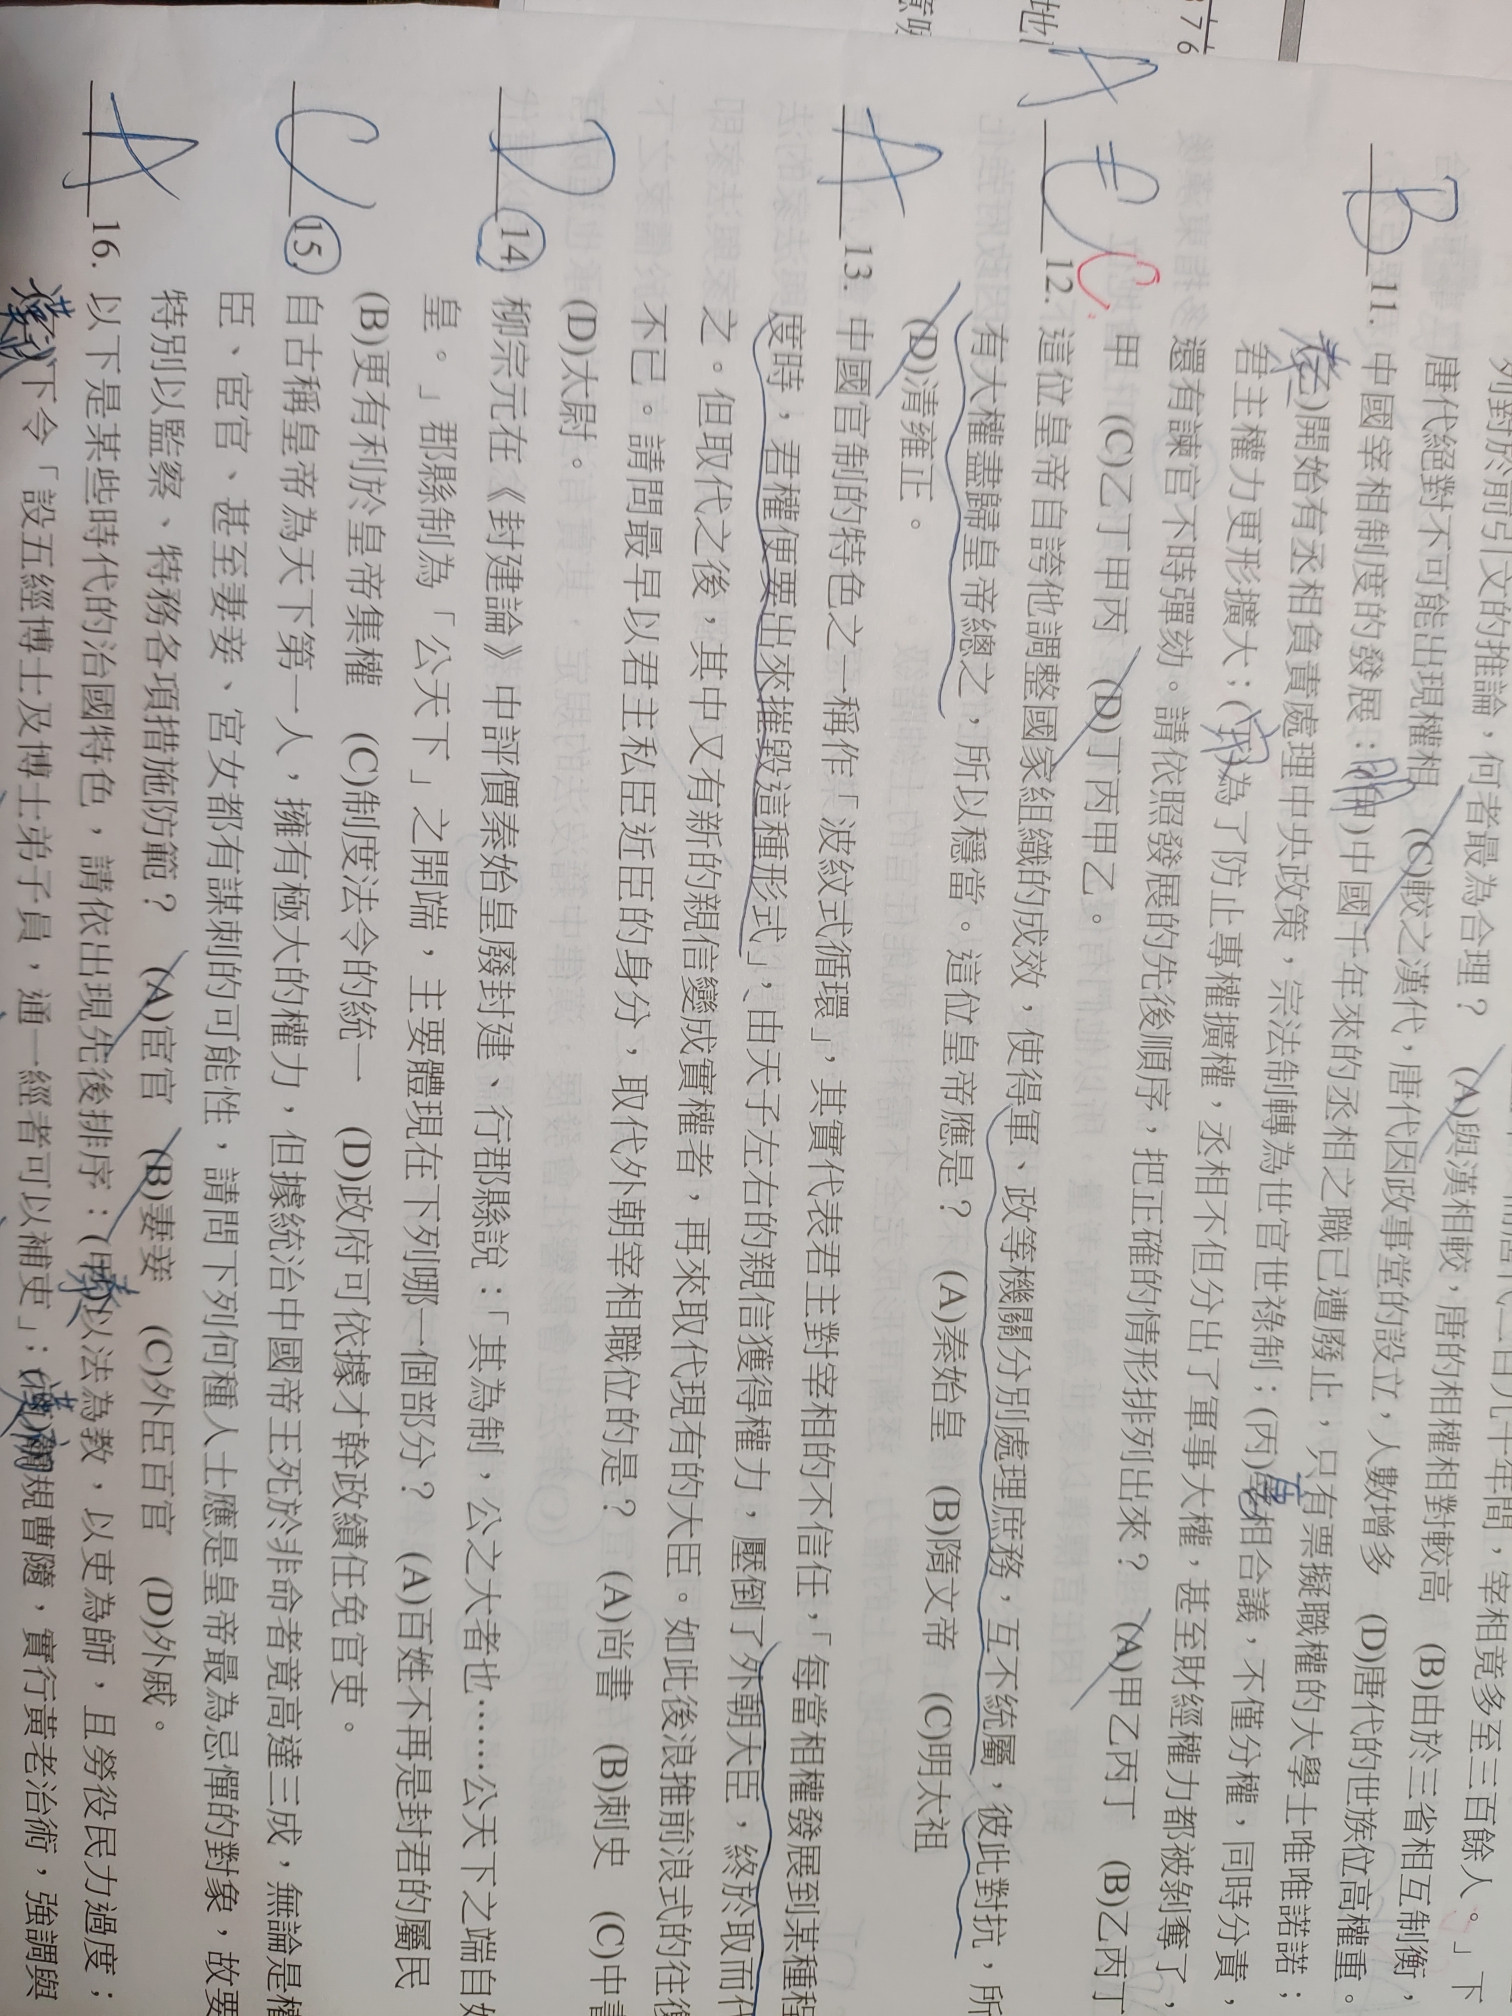 列對於前引文的推論，何者最為合理？ (A)與漢相較，唐的相權相對較高 (B)由於三省相互制衡，
唐代絕對不可能出現權相 (C)較之漢代，唐代因政事堂的設立，人數增多 (D)唐代的世族位高權重。
B 11. 中國宰相制度的發展：(甲)中國千年來的丞相之職已遭廢止，只有票擬職權的大學士唯唯諾諾；
(乙)開始有丞相負責處理中央政策，宗法制轉為世官世祿制；(丙)宰相合議，不僅分權，同時分責，
君主權力更形擴大；(丁)為了防止專權擴權，丞相不但分出了軍事大權，甚至財經權力都被剝奪了，
還有諫官不時彈劾。請依照發展的先後順序，把正確的情形排列出來？ (A)甲乙丙丁 (B)乙丙丁
甲 (C)乙丁甲丙 (D)丁丙甲乙。
A = C C 12. 這位皇帝自誇他調整國家組織的成效，使得軍、政等機關分別處理庶務，互不統屬，彼此對抗，所
有大權盡歸皇帝總之，所以穩當。這位皇帝應是？ (A)秦始皇 (B)隋文帝 (C)明太祖
(D)清雍正。
A 13. 中國官制的特色之一稱作「波紋式循環」，其實代表君主對宰相的不信任，「每當相權發展到某種程
度時，君權便要出來摧毀這種形式」，由天子左右的親信獲得權力，壓倒了外朝大臣，終於取而代
之。但取代之後，其中又有新的親信變成實權者，再來取代現有的大臣。如此後浪推前浪式的往復
不已。請問最早以君主私臣近臣的身分，取代外朝宰相職位的是？ (A)尚書 (B)刺史 (C)中書
(D)太尉。
D 14. 柳宗元在《封建論》中評價秦始皇廢封建、行郡縣說：「其為制，公之大者也……公天下之端自始
皇。」郡縣制為「公天下」之開端，主要體現在下列哪一個部分？ (A)百姓不再是封君的屬民
(B)更有利於皇帝集權 (C)制度法令的統一 (D)政府可依據才幹政績任免官吏。
C 15. 自古稱皇帝為天下第一人，擁有極大的權力，但據統治中國帝王死於非命者竟高達三成，無論是權
臣、宦官、甚至妻妾、宮女都有謀刺的可能性，請問下列何種人士應是皇帝最為忌憚的對象，故要
特別以監察、特務各項措施防範？ (A)宦官 (B)妻妾 (C)外臣百官 (D)外戚。
A 16. 以下是某些時代的治國特色，請依出現先後排序：(甲)以法為教，以吏為師，且勞役民力過度；
下令「設五經博士及博士弟子員，通一經者可以補吏」；規曹隨，實行黃老治術，強調與